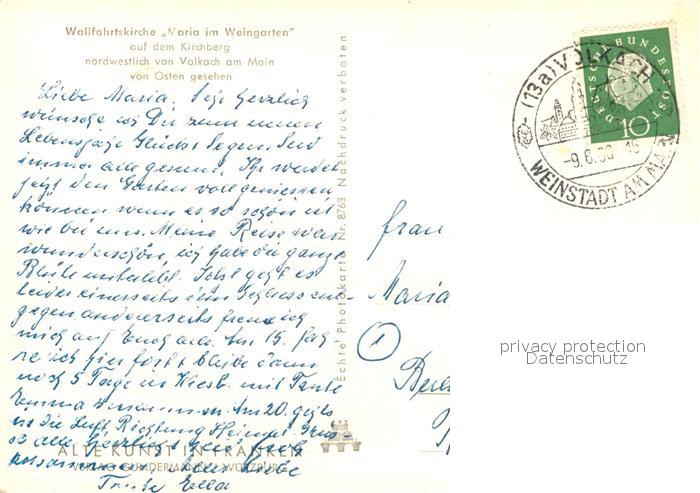 Wallfahrtskirche „Maria im Weingarten"
auf dem Kirchberg
nordwestlich von Volkach am Main
von Osten gesehen
Liebe Maria, Sehr herzlich
wünsche ich Dir zum neuen
Lebensjahr Glück & Segen. Seid
immer alle gesund. Ihr werdet
jetzt den Garten voll geniessen
können wenn es so schön ist
wie bei uns. Meine Reise war
wunderschön, ich habe die ganze
Blüte miterlebt. Jetzt geht es
leider einerseits dem Schluss ent-
gegen andererseits freue ich
mich auf Euch alle. Am 15. fah-
re ich hier fort & bleibe dann
noch 5 Tage in Wiesb. mit Tante
Emma zusammen. Am 20. geht's
in die Luft Richtung Heimat.
so alle herzlichst
Liebe
Tante Ella
ALTE KUNST IN FRANKEN
VERLAG GUNDERMANN, WÜRZBURG
Echte Photokarte Nr. 8763 Nachdruck verboten
Frau
Maria
①
Berlin
(13a) VOLKACH
-9.6.60-
WEINSTADT AM MAIN
DEUTSCHE BUNDESPOST
10
privacy protection
Datenschutz